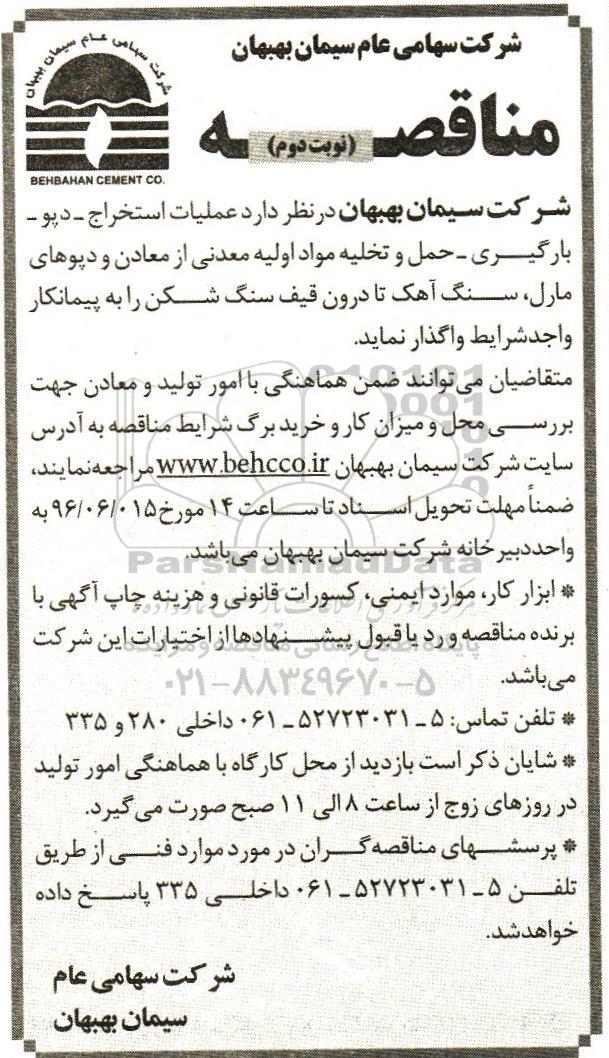 شرکت سهامی عام سیمان بهبهان
شرکت سهامی عام سیمان بهبهان
BEHBAHAN CEMENT CO.
مناقصه
(نوبت دوم)
شرکت سیمان بهبهان در نظر دارد عملیات استخراج ـ دپو ـ
بارگیری ـ حمل و تخلیه مواد اولیه معدنی از معادن و دپوهای
مارل، سنگ آهک تا درون قیف سنگ شکن را به پیمانکار
واجد شرایط واگذار نماید.
متقاضیان می‌توانند ضمن هماهنگی با امور تولید و معادن جهت
بررسی محل و میزان کار و خرید برگ شرایط مناقصه به آدرس
سایت شرکت سیمان بهبهان www.behcco.ir مراجعه نمایند،
ضمناً مهلت تحویل اسناد تا ساعت ۱۴ مورخ ۹۶/۰۶/۰۱۵ به
واحد دبیرخانه شرکت سیمان بهبهان می‌باشد.
ParsNamadData
* ابزار کار، موارد ایمنی، کسورات قانونی و هزینه چاپ آگهی با
برنده مناقصه و رد یا قبول پیشنهادها از اختیارات این شرکت
می‌باشد.
۰۲۱-۸۸۳۴۹۶۷۰-۵
* تلفن تماس: ۵ ـ ۵۲۷۲۳۰۳۱ ـ ۰۶۱ داخلی ۲۸۰ و ۳۳۵
* شایان ذکر است بازدید از محل کارگاه با هماهنگی امور تولید
در روزهای زوج از ساعت ۸ الی ۱۱ صبح صورت می‌گیرد.
* پرسشهای مناقصه‌گران در مورد موارد فنی از طریق
تلفن ۵ ـ ۵۲۷۲۳۰۳۱ ـ ۰۶۱ داخلی ۳۳۵ پاسخ داده
خواهد شد.
شرکت سهامی عام
سیمان بهبهان